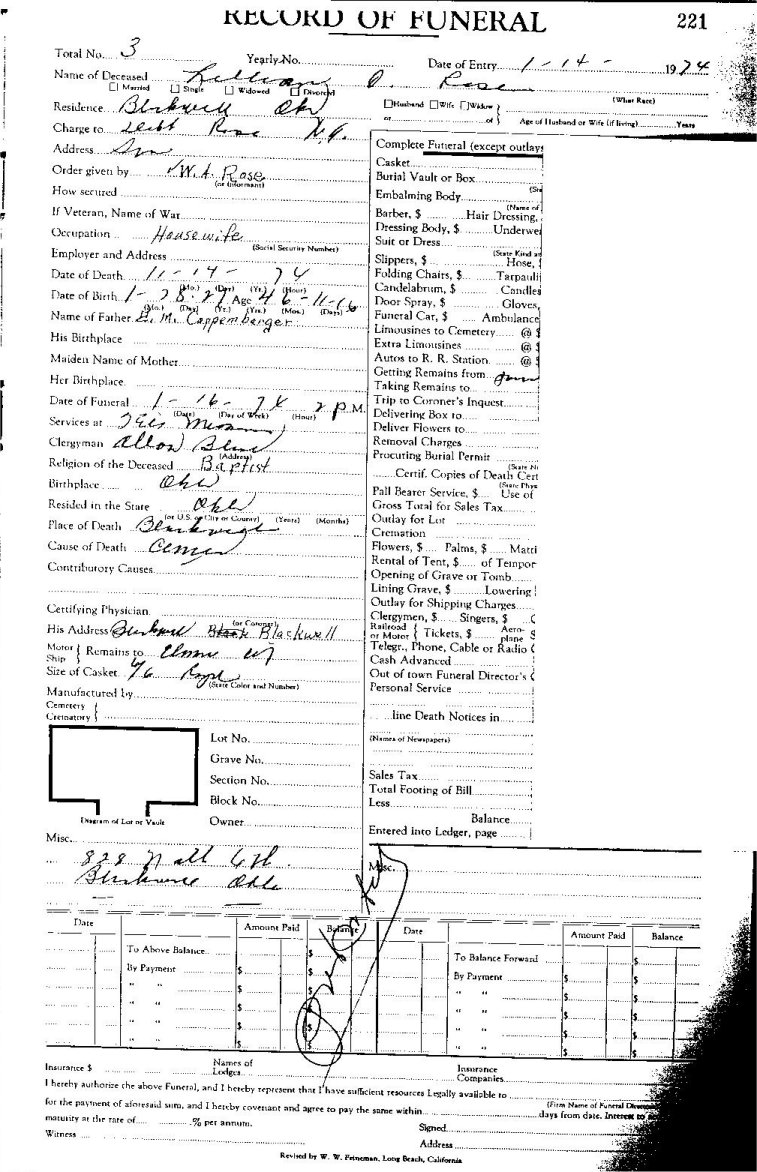 RECORD OF FUNERAL 221
Total No. 3 Yearly No. Date of Entry 1-14- 1974
Name of Deceased Lillian O. Rose
Married Single Widowed Divorced Husband Wife Widow (What Race)
Residence Blackwell Okl or of Age of Husband or Wife (if living) Years
Charge to Rose
Address
Order given by W.A. Rose
(or Informant)
How secured
If Veteran, Name of War
Occupation Housewife
(Social Security Number)
Employer and Address
Date of Death 11-14-74
(Mo.) (Day) (Yr.) (Hour)
Date of Birth 1-28-27 Age 46-11-16
(Mo.) (Day) (Yr.) (Yrs.) (Mos.) (Days)
Name of Father E. M. Cappemberger
His Birthplace
Maiden Name of Mother
Her Birthplace
Date of Funeral 1-16-74 2 P.M.
(Date) (Day of Week) (Hour)
Services at
Clergyman
(Address)
Religion of the Deceased Baptist
Birthplace Okl
Resided in the State Okl
(or U.S. or City or County) (Years) (Months)
Place of Death Blackwell
Cause of Death Cancer
Contributory Causes
Certifying Physician
(or Coroner)
His Address Blackwell Blackwell
Motor Ship Remains to
Size of Casket 6/6
(State Color and Number)
Manufactured by
Cemetery
Crematory
Complete Funeral (except outlays
Casket
Burial Vault or Box
Embalming Body
(Name of
Barber, $ Hair Dressing,
Dressing Body, $ Underwea
Suit or Dress
(State Kind an
Slippers, $ Hose, $
Folding Chairs, $ Tarpauli
Candelabrum, $ Candles
Door Spray, $ Gloves,
Funeral Car, $ Ambulance
Limousines to Cemetery @ $
Extra Limousines @ $
Autos to R. R. Station @ $
Getting Remains from
Taking Remains to
Trip to Coroner's Inquest
Delivering Box to
Deliver Flowers to
Removal Charges
Procuring Burial Permit
(State N
Certif. Copies of Death Cert
(State Phys
Pall Bearer Service, $ Use of
Gross Total for Sales Tax
Outlay for Lot
Cremation
Flowers, $ Palms, $ Matti
Rental of Tent, $ of Tempor
Opening of Grave or Tomb
Lining Grave, $ Lowering
Outlay for Shipping Charges
Clergymen, $ Singers, $
Railroad or Motor Tickets, $ Aeroplane $
Telegr., Phone, Cable or Radio
Cash Advanced
Out of town Funeral Director's
Personal Service
line Death Notices in
(Names of Newspapers)
Sales Tax
Total Footing of Bill
Less
Balance
Entered into Ledger, page
Lot No.
Grave No.
Section No.
Block No.
Owner
Diagram of Lot or Vault
Misc. Misc.
828
Blackwell Okla
Date Amount Paid Balance Date Amount Paid Balance
To Above Balance $ To Balance Forward $
By Payment $ $ By Payment $ $
" " $ $ " " $ $
" " $ $ " " $ $
" " $ $ " " $ $
" " $ $ " " $ $
Insurance $ Names of Lodges Insurance Companies
I hereby authorize the above Funeral, and I hereby represent that I have sufficient resources Legally available to
(Firm Name of Funeral Director
for the payment of aforesaid sum, and I hereby covenant and agree to pay the same within days from date. Interest to
maturity at the rate of % per annum. Signed
Witness Address
Revised by W. W. Feineman, Long Beach, California